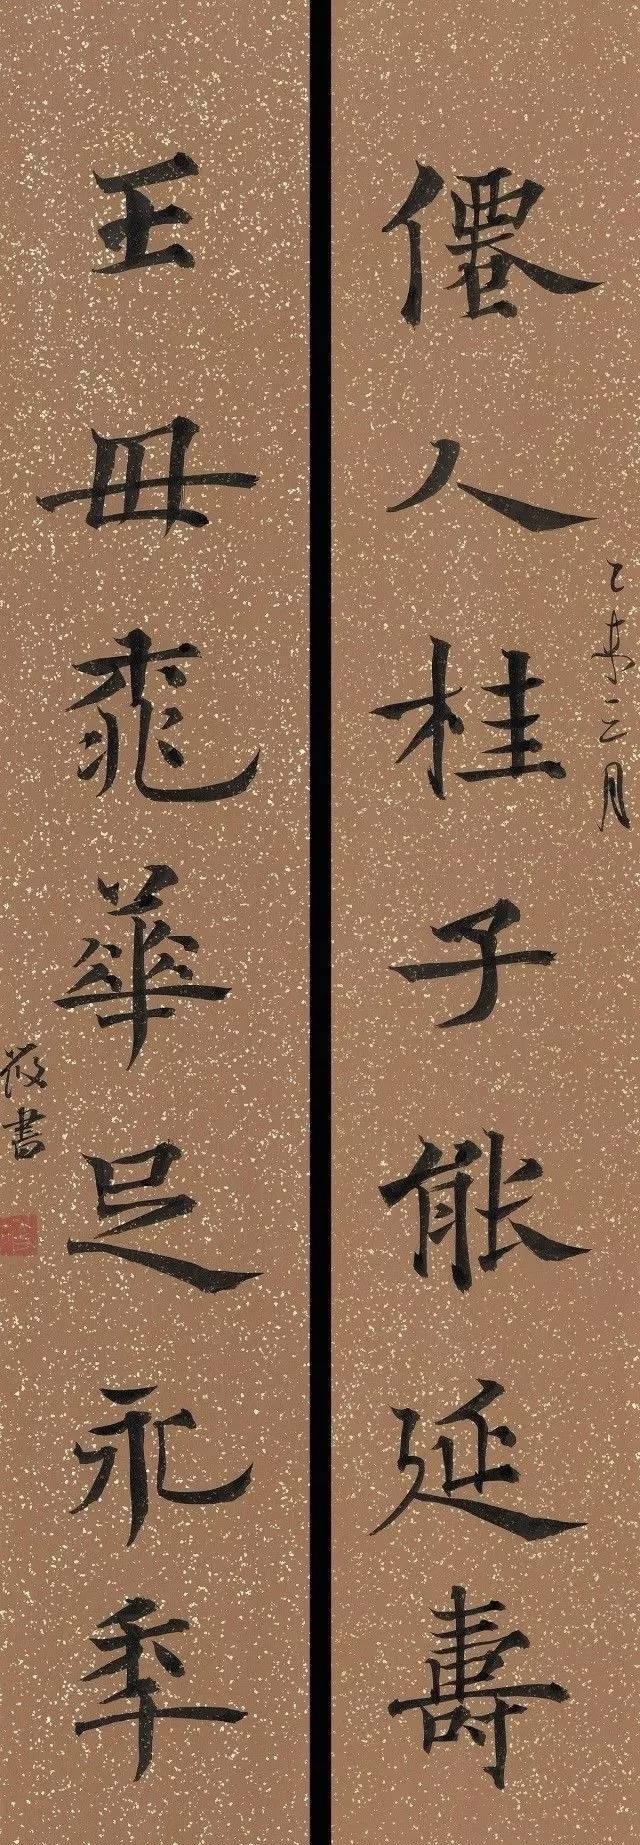 僊人桂子能延壽
乙未三月
王母桃華足永秊
書